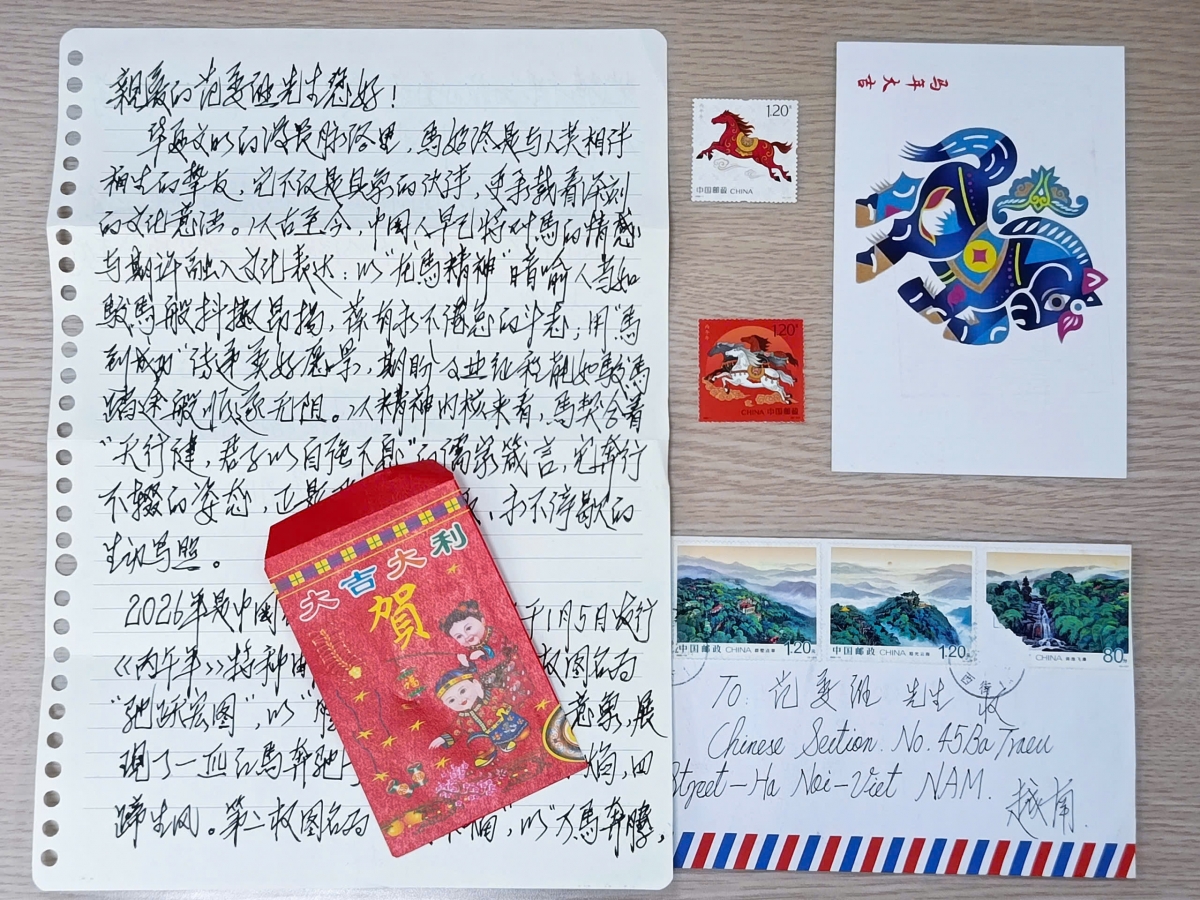 亲爱的范夏班先生您好!
华夏文明的漫长脉络里,馬始终是与人类相伴
相生的挚友,它不仅是具象的伙伴,更承载着深刻
的文化意涵。从古至今,中国人早已将对馬的情感
与期许融入文化表达:以“龙馬精神”暗喻人当如
駿馬般抖擞昂扬,葆有永不倦怠的斗志;用“馬
到成功”传递美好愿景,期盼
踏途般顺遂无阻。从精神内核来看,馬契合着
“天行健,君子以自强不息”的儒家箴言,它奔行
不辍的姿态,正是 永不停歇的
生动写照。
2026年是中国 于1月5日发行
《丙午年》特种邮 枚图名为
“驰跃宏图”,以 意象,展
现了一匹红馬奔驰 四
蹄生风。第二枚图名为 ”,以“万馬奔腾,
大吉大利
賀
120分
中国邮政 CHINA
120分
CHINA 中国邮政
马年大吉
中国邮政 CHINA 1.20元
中国邮政 CHINA 1.20元
CHINA 80分
TO: 范夏班 先生 收
Chinese Section. No. 45 Ba Traeu
Street-Ha Noi-Viet NAM.
越南.